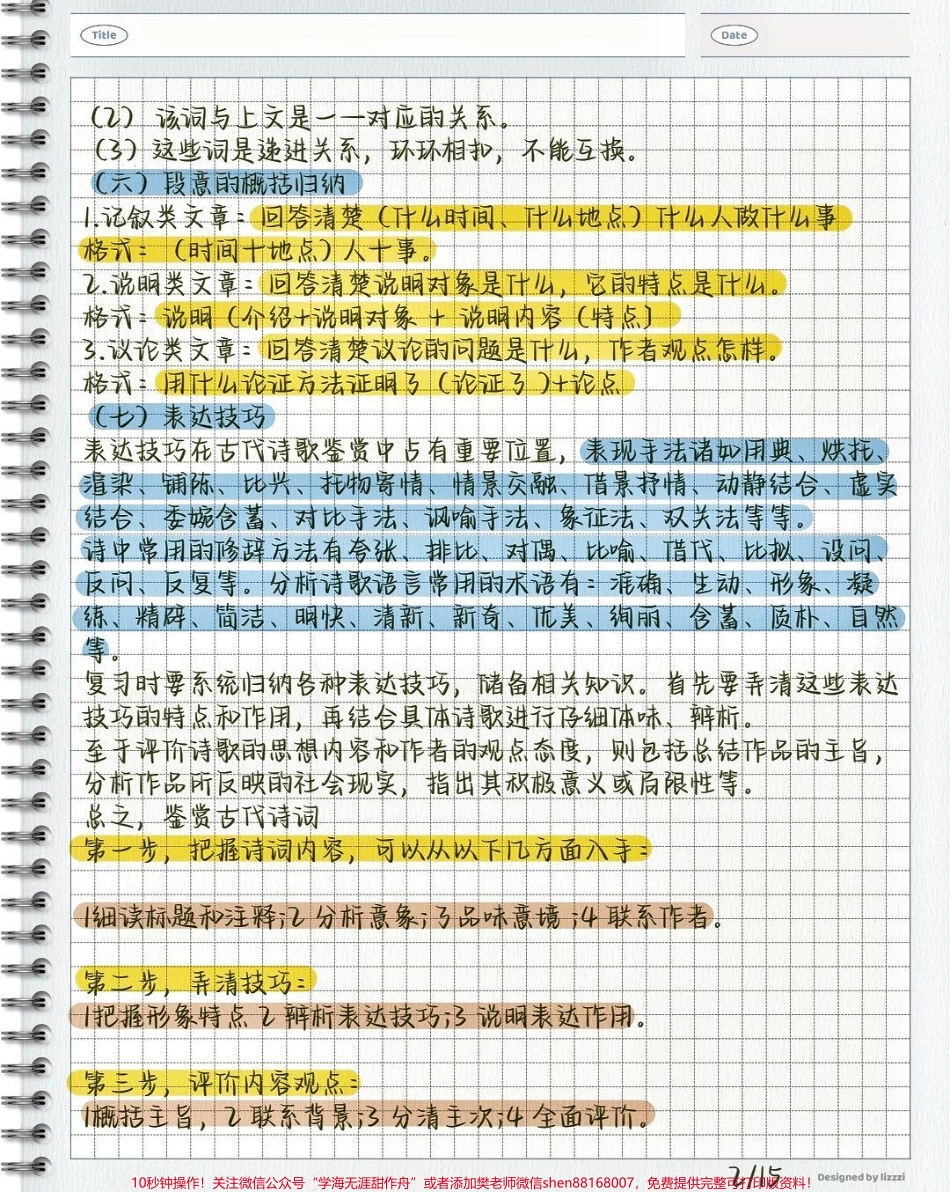 Title
Date
（2） 该词与上文是一一对应的关系。
（3）这些词是递进关系，环环相扣，不能互换。
（六）段意的概括归纳
1.记叙类文章：回答清楚（什么时间、什么地点）什么人做什么事
格式：（时间十地点）人十事。
2.说明类文章：回答清楚说明对象是什么，它的特点是什么。
格式：说明（介绍+说明对象 + 说明内容（特点）
3.议论类文章：回答清楚议论的问题是什么，作者观点怎样。
格式：用什么论证方法证明了（论证了 )+论点
（七）表达技巧
表达技巧在古代诗歌鉴赏中占有重要位置，表现手法诸如用典、烘托、
渲染、铺陈、比兴、托物寄情、情景交融、借景抒情、动静结合、虚实
结合、委婉含蓄、对比手法、讽喻手法、象征法、双关法等等。
诗中常用的修辞方法有夸张、排比、对偶、比喻、借代、比拟、设问、
反问、反复等。分析诗歌语言常用的术语有：准确、生动、形象、凝
练、精辟、简洁、明快、清新、新奇、优美、绚丽、含蓄、质朴、自然
等。
复习时要系统归纳各种表达技巧，储备相关知识。首先要弄清这些表达
技巧的特点和作用，再结合具体诗歌进行仔细体味、辨析。
至于评价诗歌的思想内容和作者的观点态度，则包括总结作品的主旨，
分析作品所反映的社会现实，指出其积极意义或局限性等。
总之，鉴赏古代诗词
第一步，把握诗词内容，可以从以下几方面入手：
1细读标题和注释;2 分析意象;3品味意境 ;4 联系作者。
第二步，弄清技巧：
1把握形象特点 2 辨析表达技巧;3 说明表达作用。
第三步，评价内容观点：
1概括主旨，2 联系背景;3 分清主次;4 全面评价。
2/15
Designed by lizzzi
10秒钟操作！关注微信公众号“学海无涯甜作舟”或者添加樊老师微信shen88168007，免费提供完整可打印版资料！